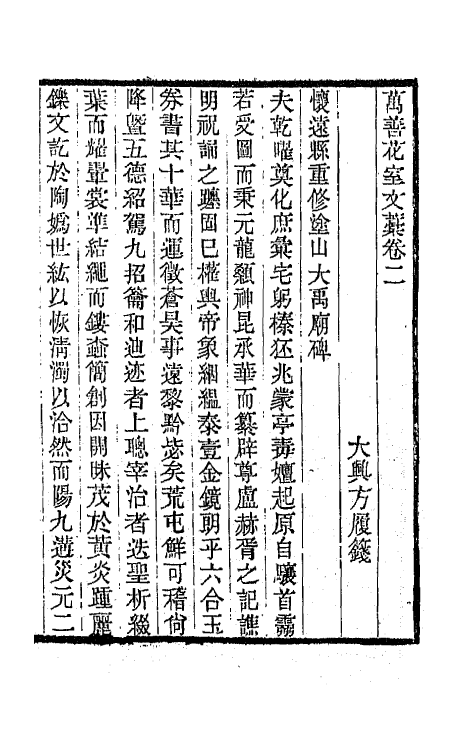 萬善花室文藁卷二
大興方履籛
懷遠縣重修塗山大禹廟碑
夫乾曜奠化庶彙宅躬榛狉兆蒙亭毒嬗起原自驤首
若受圖而秉元龍顙神昆承華而纂辟尊盧赫胥之記譙
明祝誦之驪固已權輿帝象絪縕泰壹金鏡朗乎六合玉
券書其十華而運徵蒼昊事遠黎黔毖矣荒屯鮮可稽尙
降暨五德紹駕九招籥和迪迹者上聰宰治者迭聖析綴
葉而耀暈裳準結繩而鏤蠧簡創因開昧茂於黃炎踵麗
鑠文訖於陶嬀世紘以恢淸濁以洽然而陽九遘災元二